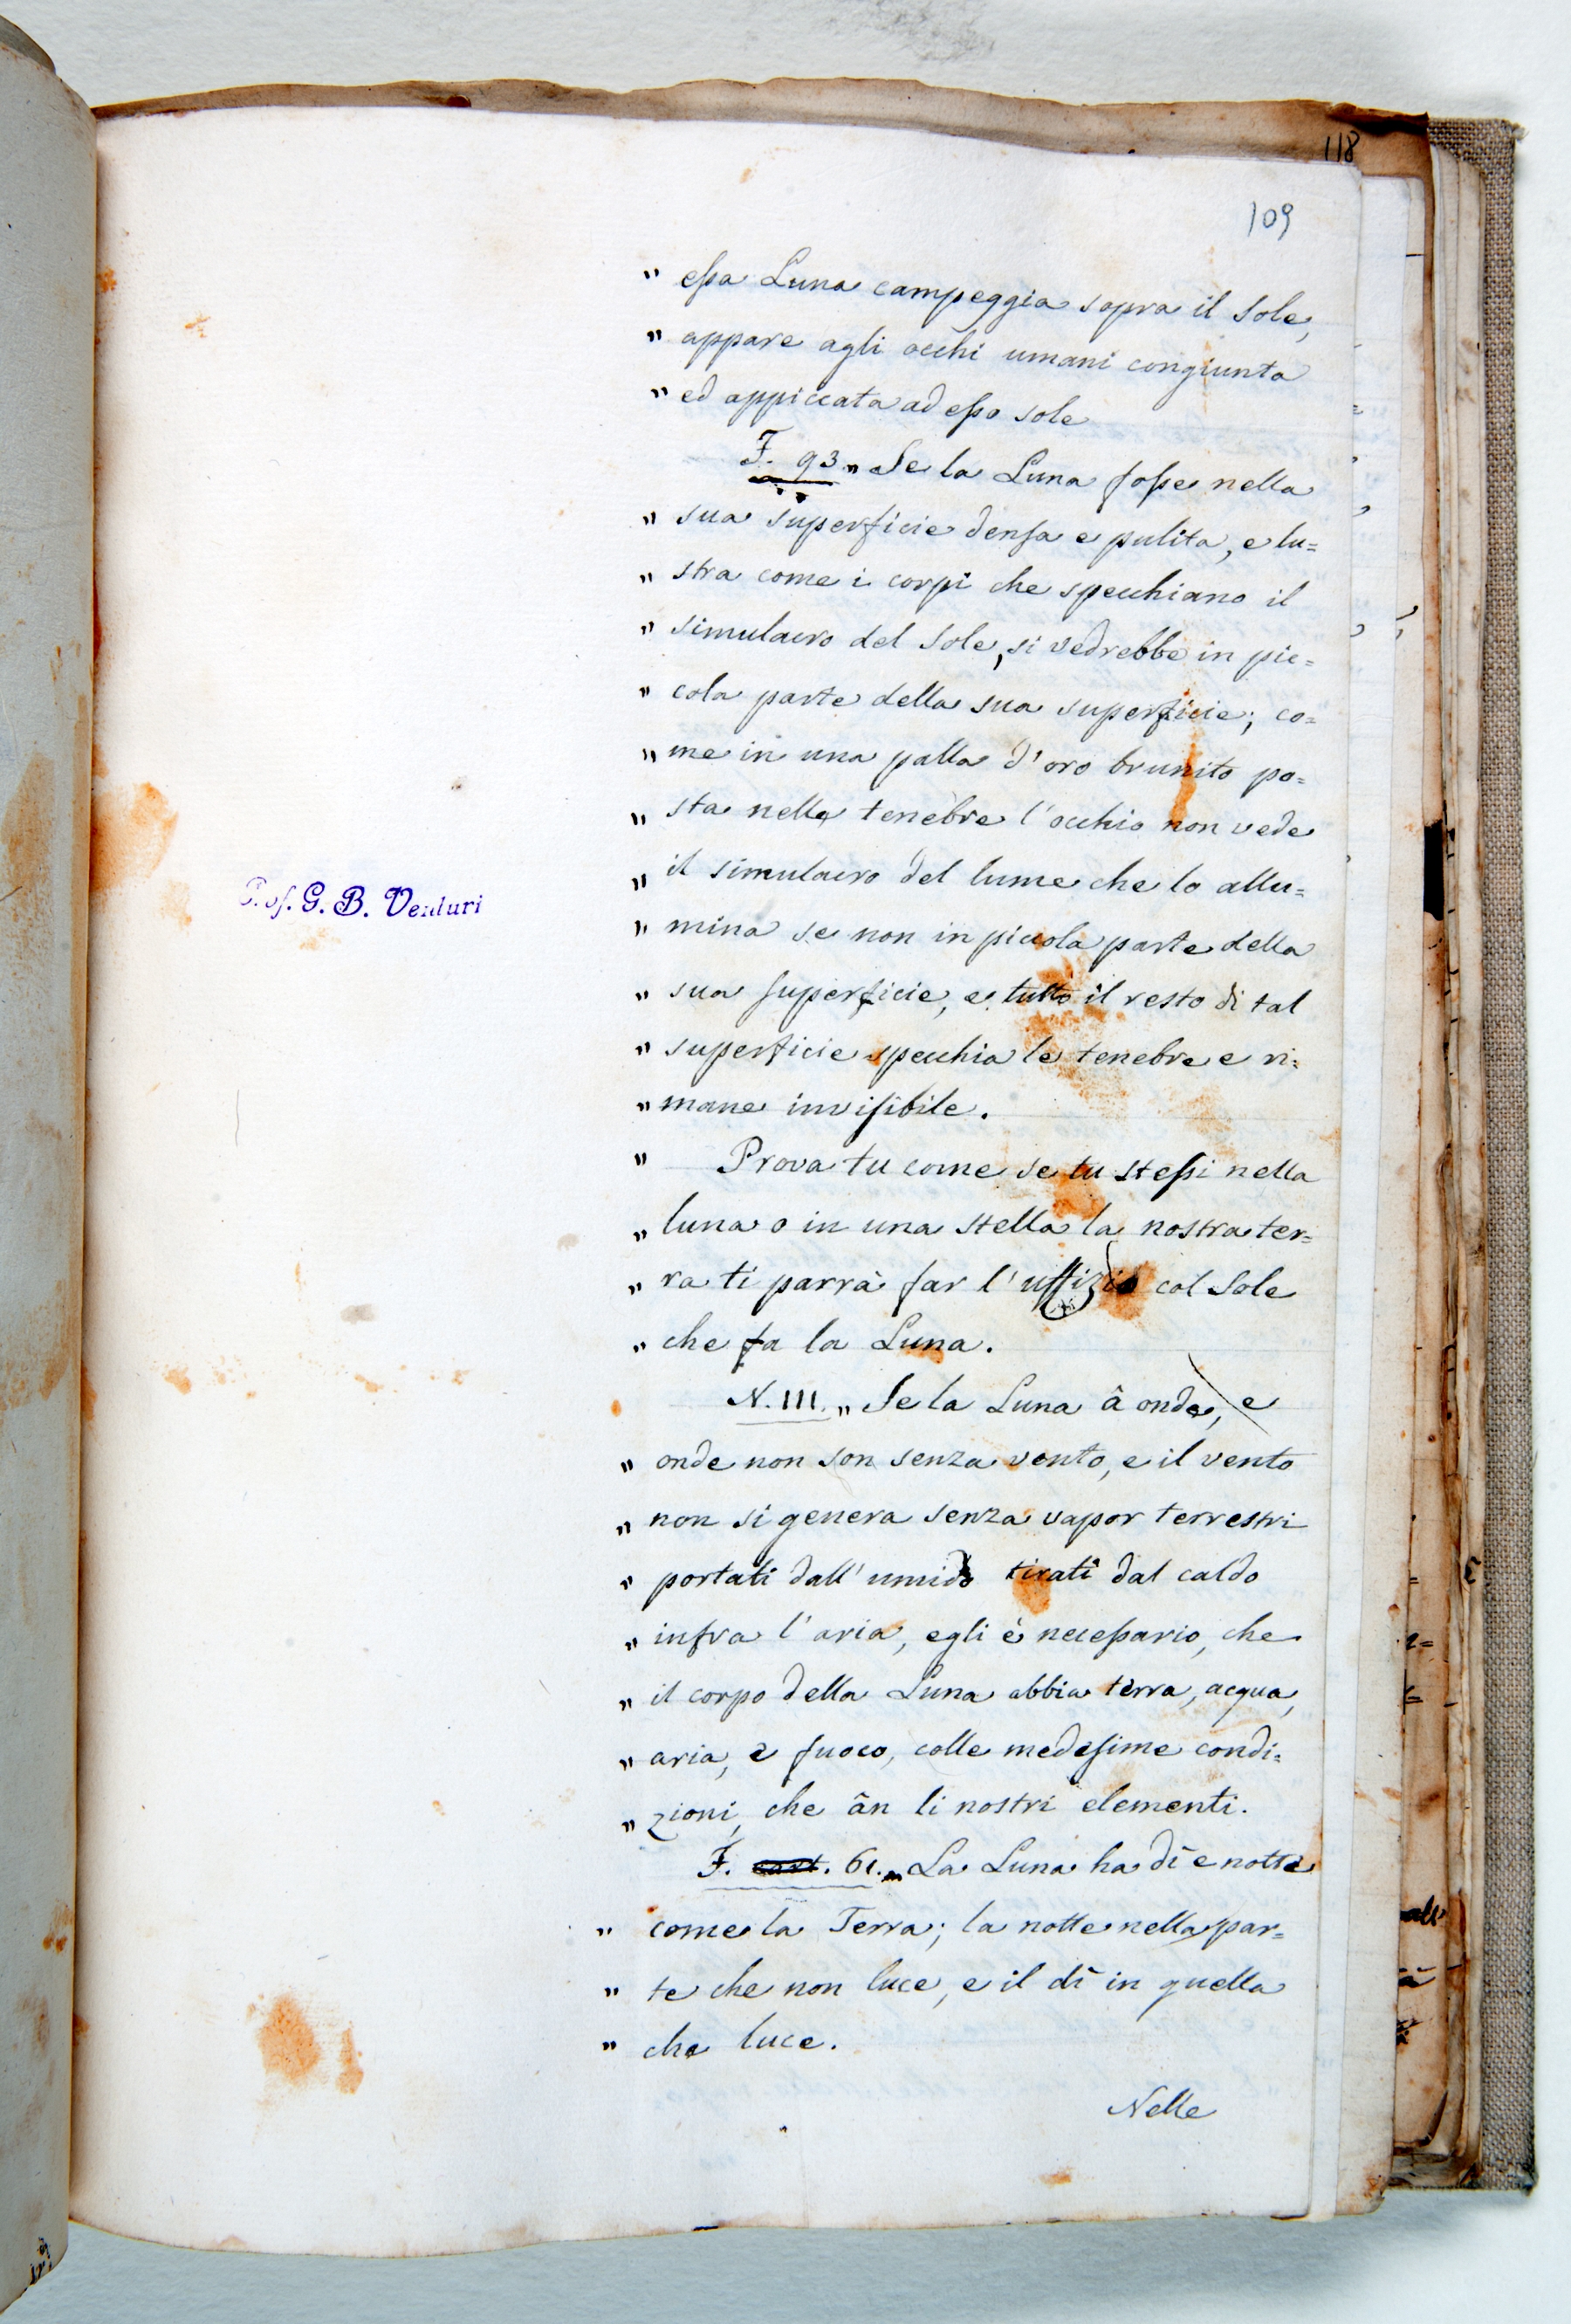 118
109
" eſsa Luna campeggia sopra il Sole,
" appare agli occhi umani congiunta
" ed appiccata ad eſso sole
F. 93. " Se la Luna foſse nella
" sua superficie denſa e pulita, e lu=
" stra come i corpi che specchiano il
" simulacro del Sole, si vedrebbe in pic=
" cola parte della sua superficie; co=
" me in una palla d'oro brunito po=
" sta nelle tenebre l'occhio non vede
" il simulacro del lume che lo allu=
" mina se non in piccola parte della
" sua ſuperficie, e tutto il resto di tal
" superficie specchia le tenebre e ri=
" mane inviſibile.
" Prova tu come se tu steſsi nella
" luna o in una stella la nostra ter=
" ra ti parrà far l'uffizio col Sole
" che fa la Luna.
N. III. " Se la Luna â onde, e
" onde non son senza vento, e il vento
" non si genera senza vapor terrestri
" portati dall'umido tirati dal caldo
" infra l'aria, egli è neceſsario, che
" il corpo della Luna abbia terra, acqua,
" aria, e fuoco, colle medeſime condi=
" zioni, che ân li nostri elementi.
F. cart. 61. " La Luna ha dì e notte
" come la Terra; la notte nella par=
" te che non luce, e il dì in quella
" che luce.
Nelle
Prof. G. B. Venturi